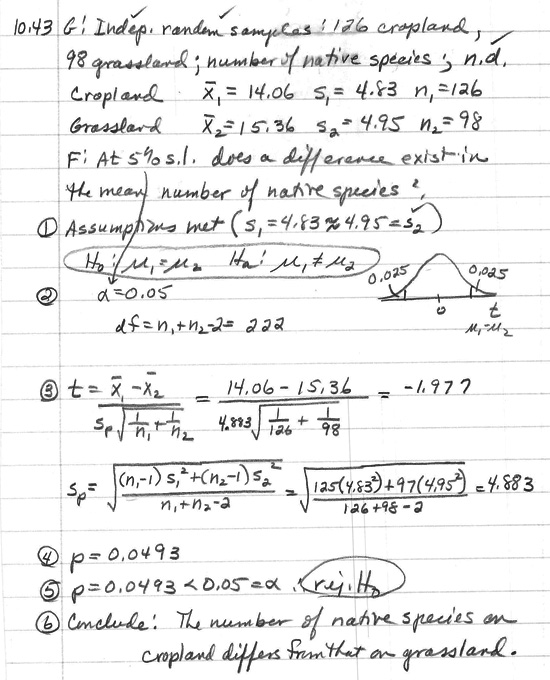 10.43 G: Indep. random samples: 126 cropland,
98 grassland; number of native species; n.d.
Cropland x̄₁ = 14.06 s₁ = 4.83 n₁ = 126
Grassland x̄₂ = 15.36 s₂ = 4.95 n₂ = 98
F: At 5% s.l. does a difference exist in
the mean number of native species?
① Assumptions met (s₁ = 4.83 ≈ 4.95 = s₂)
H₀: μ₁ = μ₂ Ha: μ₁ ≠ μ₂
0.025 0.025
② α = 0.05
0 t
df = n₁ + n₂ - 2 = 222
μ₁ = μ₂
③ t = (x̄₁ - x̄₂) / (sₚ√(1/n₁ + 1/n₂)) = (14.06 - 15.36) / (4.883√(1/126 + 1/98)) = -1.977
sₚ = √(((n₁-1) s₁² + (n₂-1) s₂²) / (n₁ + n₂ - 2)) = √((125(4.83²) + 97(4.95²)) / (126 + 98 - 2)) = 4.883
④ p = 0.0493
⑤ p = 0.0493 < 0.05 = α ∴ rej. H₀
⑥ Conclude: The number of native species on
cropland differs from that on grassland.